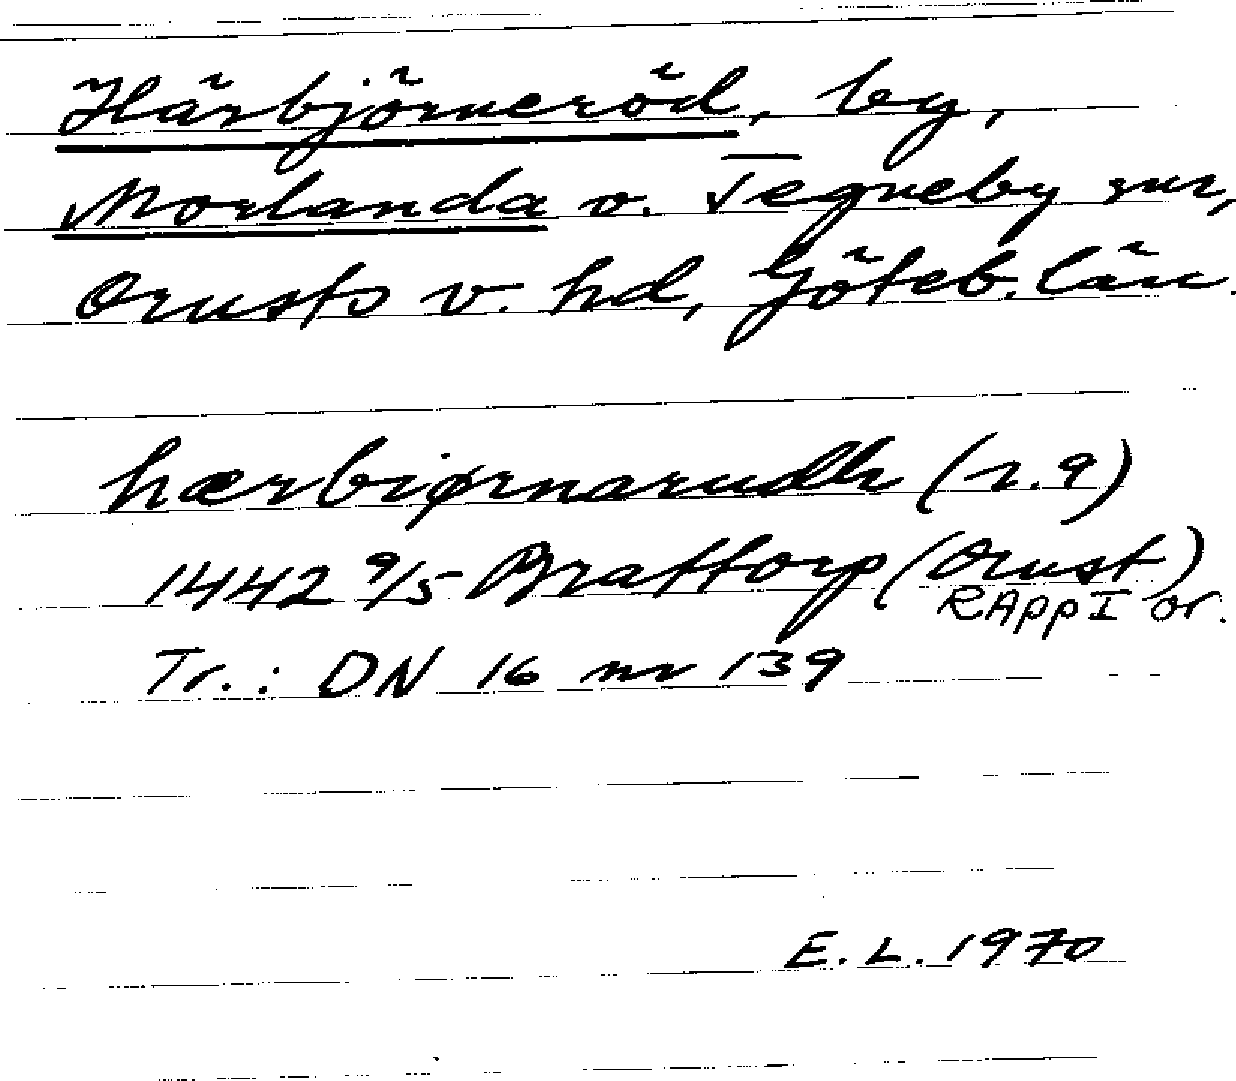 Härbjörneröd, by,
Morlanda o. Tegneby snr,
Orusts v. hd, Göteb. län.
hærbiørnarudh (r. 9)
1442 9/5 Brattorp (Orust)
RAppI or.
Tr.: DN 16 nr 139
E. L. 1970